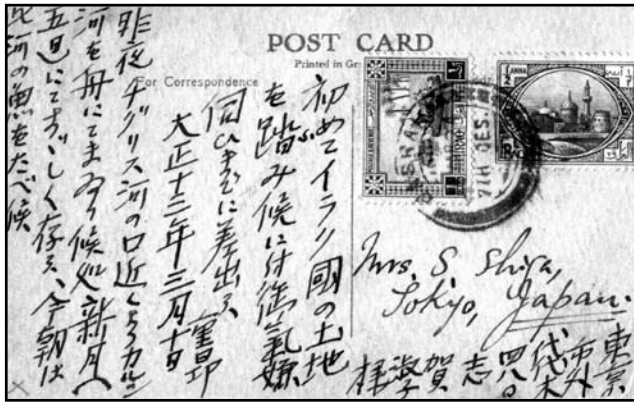 POST CARD
Printed in Gr
For Correspondence
初めてイラク國の土地
を踏み候に付御氣嫌
伺ひまでに差出候 重昂
大正十三年三月十日
昨夜チグリス河の口近くよりカルン
河を舟にてまゐり候処新月(
五日にてすゞしく存候、今朝は
此河の魚をたべ候
ASHAR
ANNA
Mrs. S. Shiga,
Tokyo, Japan.
東京
市外
代々木
志
賀
様